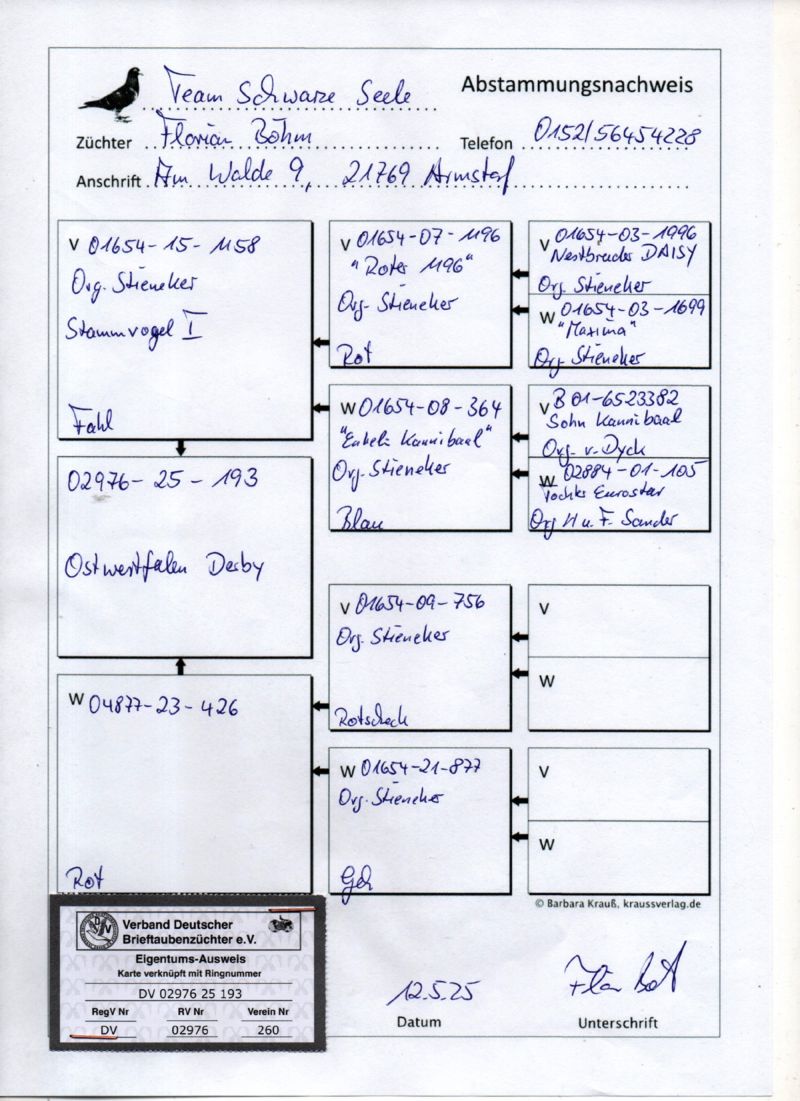 Team Schwarze Seele
Abstammungsnachweis
Züchter Florian Böhm
Telefon 0152/56454228
Anschrift Am Walde 9, 21769 Armstorf
V 01654-15-1158
Org. Stieneker
Stammvogel I
Fahl
V 01654-07-1196
"Roter 1196"
Org. Stieneker
Rot
V 01654-03-1996
Nestbruder DAISY
Org. Stieneker
W 01654-03-1699
"Maxima"
Org. Stieneker
W 01654-08-364
"Enkelin Kannibaal"
Org. Stieneker
Blau
V B 01-6523382
Sohn Kannibaal
Org. v. Dyck
W 02884-01-105
Tochter Eurostar
Org H u. F. Sander
02976-25-193
Ostwestfalen Derby
V 01654-09-756
Org. Stieneker
Rotscheck
V
W
W 04877-23-426
Rot
W 01654-21-877
Org. Stieneker
V
W
© Barbara Krauß, kraussverlag.de
Verband Deutscher
Brieftaubenzüchter e.V.
Eigentums-Ausweis
Karte verknüpft mit Ringnummer
DV 02976 25 193
RegV Nr RV Nr Verein Nr
DV 02976 260
12.5.25
Datum
Unterschrift